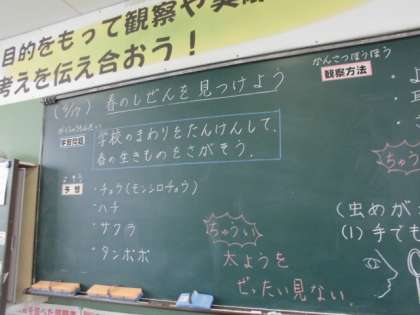 目的をもって観察や実験
考えを伝え合おう!
(4/17) 春のしぜんを見つけよう
がくしゅうもんだい
学習問題
学校のまわりをたんけんして、
春の生きものをさがそう。
よそう
予想
・チョウ(モンシロチョウ)
・ハチ
・サクラ
・タンポポ
ちゅうい
太ようを
ぜったい見ない。
かんさつほうほう
観察方法
ちゅう
(虫めが
(1) 手でも